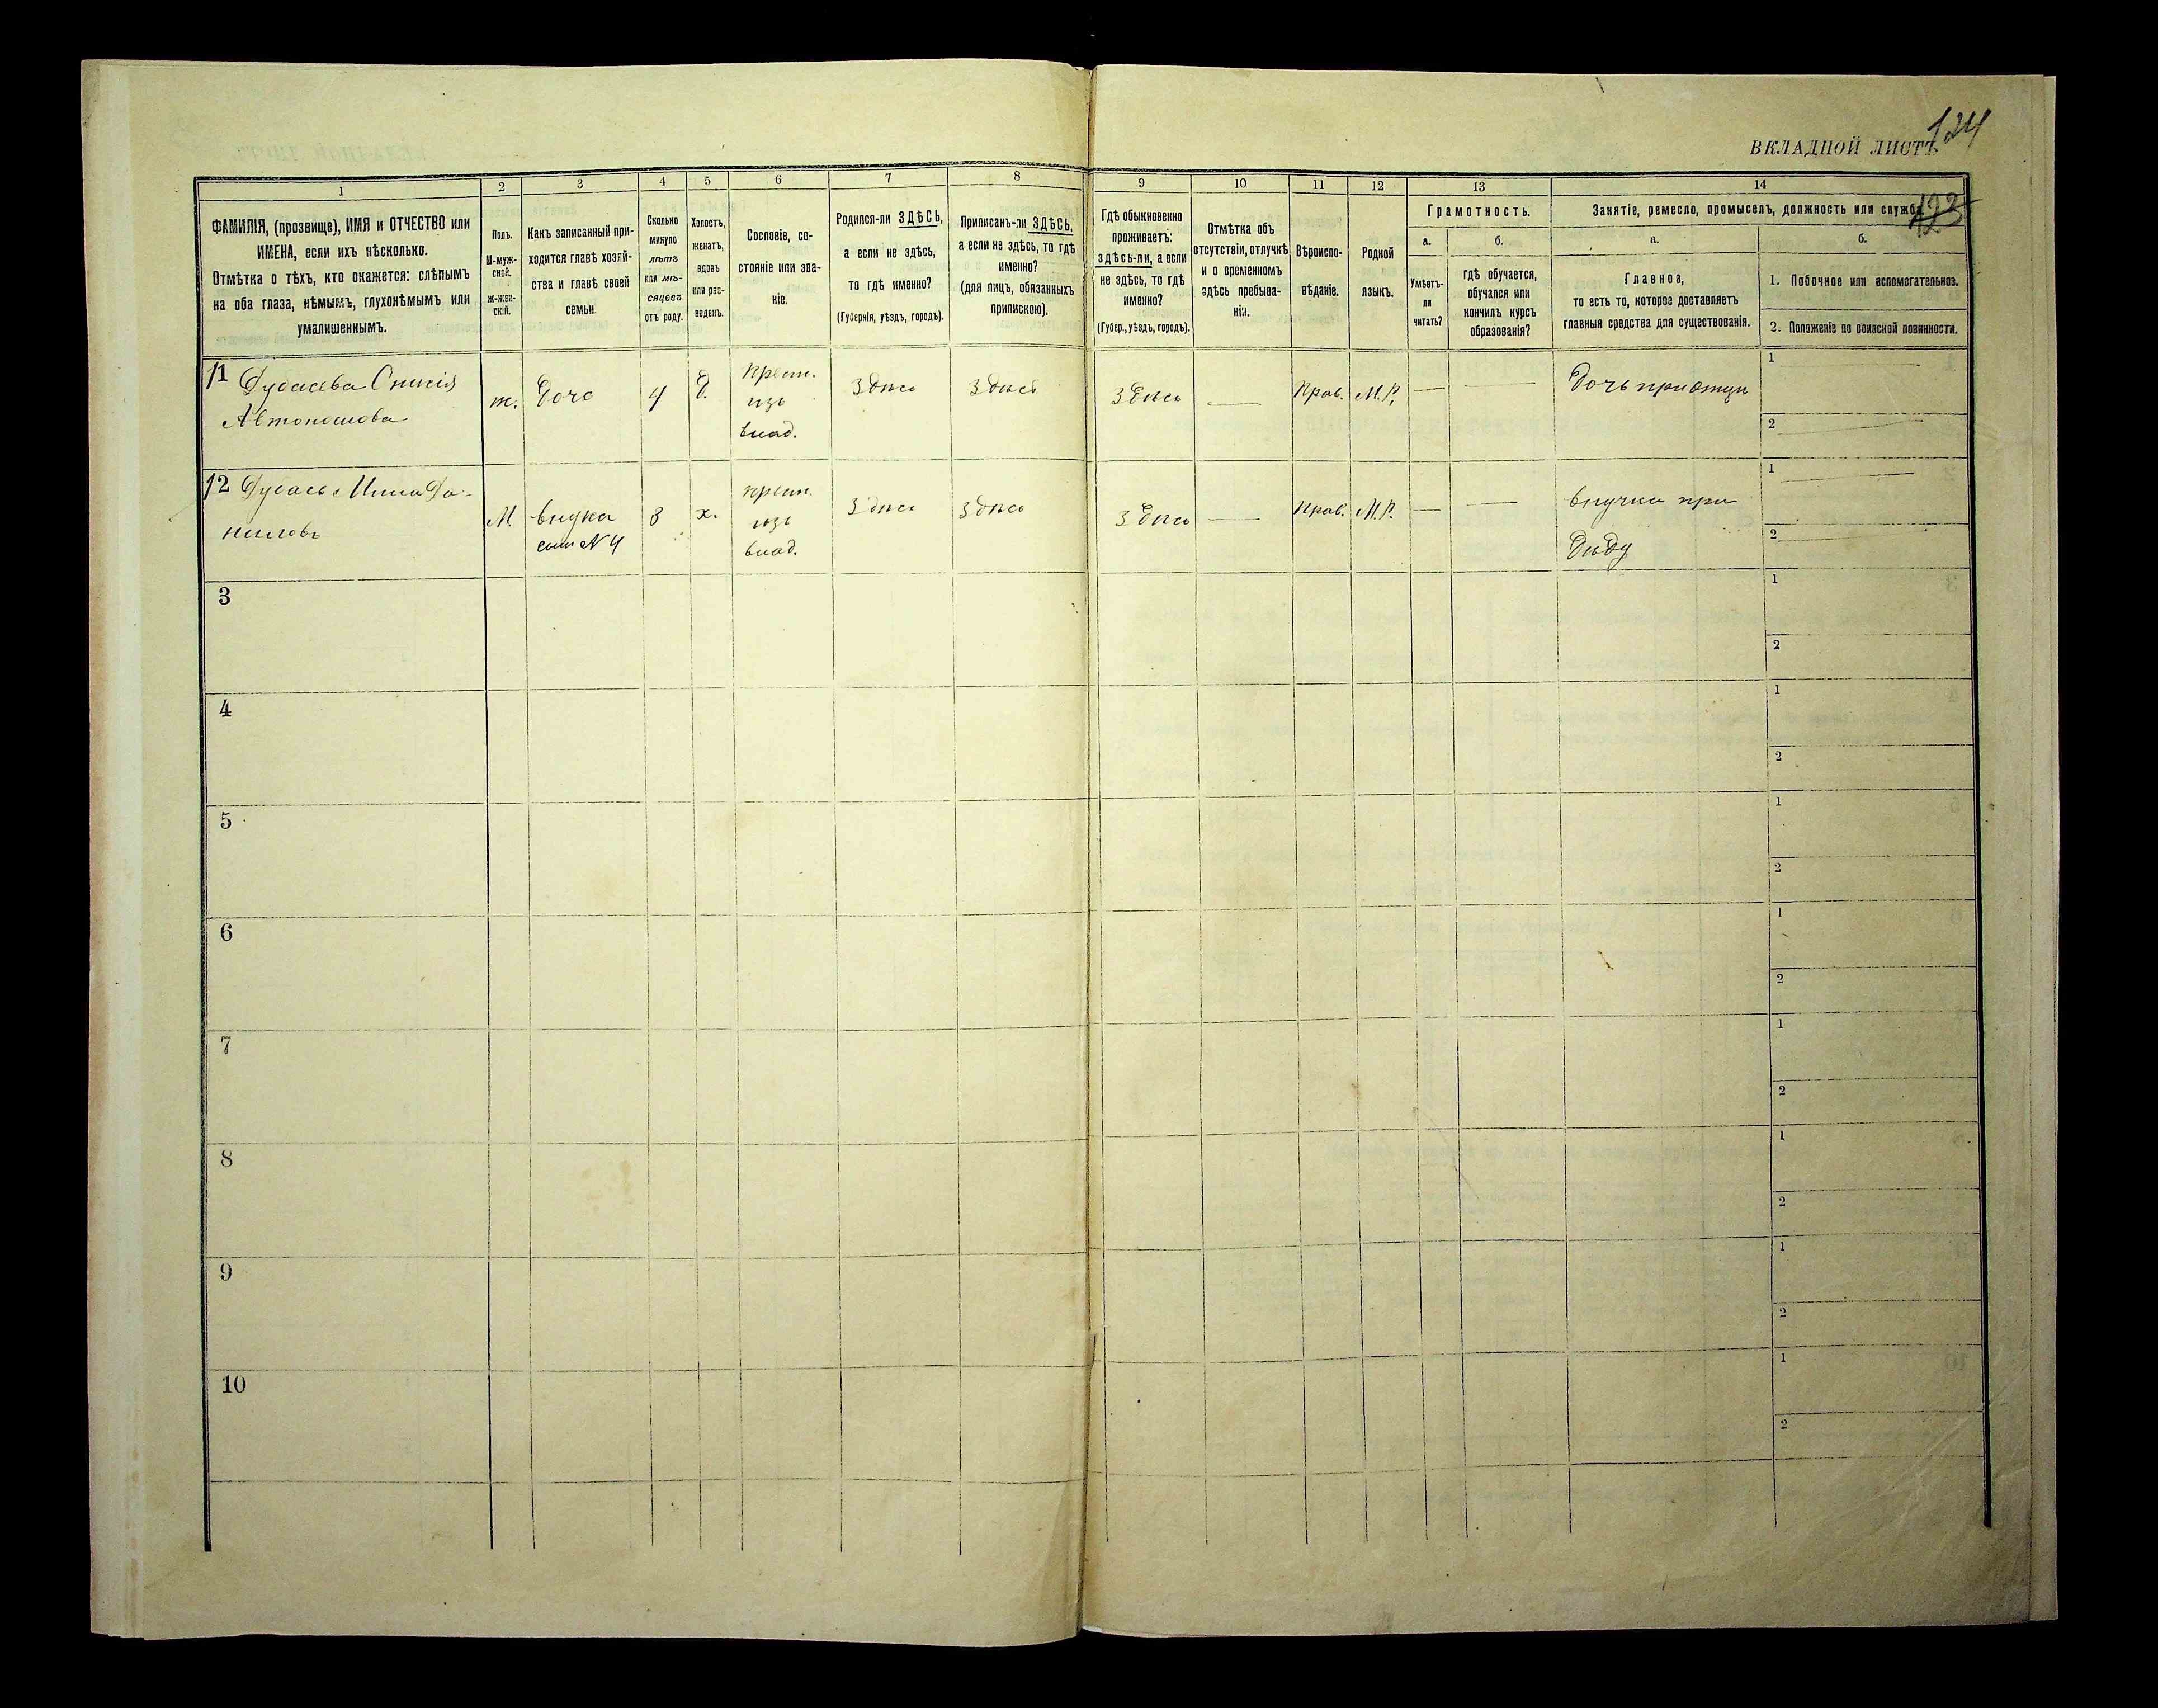 124
ВКЛАДНОЙ ЛИСТЪ
123
1 2 3 4 5 6 7 8 9 10 11 12 13 14
ФАМИЛІЯ, (прозвище), ИМЯ и ОТЧЕСТВО или
ИМЕНА, если ихъ нѣсколько.
Отмѣтка о тѣхъ, кто окажется: слѣпымъ
на оба глаза, нѣмымъ, глухонѣмымъ или
умалишеннымъ.
Полъ.
М-муж-
ской.
ж-жен-
скій.
Какъ записанный при-
ходится главѣ хозяй-
ства и главѣ своей
семьи.
Сколько
минуло
лѣтъ
или мѣ-
сяцевъ
отъ роду.
Холостъ,
женатъ,
вдовъ
или раз-
веденъ.
Сословіе, со-
стояніе или зва-
ніе.
Родился-ли ЗДѢСЬ,
а если не здѣсь,
то гдѣ именно?
(Губернія, уѣздъ, городъ).
Приписанъ-ли ЗДѢСЬ,
а если не здѣсь, то гдѣ
именно?
(для лицъ, обязанныхъ
припискою).
Гдѣ обыкновенно
проживаетъ:
здѣсь-ли, а если
не здѣсь, то гдѣ
именно?
(Губер., уѣздъ, городъ).
Отмѣтка объ
отсутствіи, отлучкѣ
и о временномъ
здѣсь пребыва-
ніи.
Вѣроиспо-
вѣданіе.
Родной
языкъ.
Грамотность.
а.
Умѣетъ-
ли
читать?
б.
гдѣ обучается,
обучался или
кончилъ курсъ
образованія?
Занятіе, ремесло, промыселъ, должность или служба.
а.
Главное,
то есть то, которое доставляетъ
главныя средства для существованія.
б.
1. Побочное или вспомогательное.
2. Положеніе по воинской повинности.
11
Автономова
ж.
дочь
4
д.
Крест.
изъ
влад.
Здѣсь
Здѣсь
Здѣсь
—
Прав.
М.Р.
—
—
Дочь при отцѣ
1
2
12
ниловъ
М.
внукъ
сынъ N 4
3
х.
крест.
изъ
влад.
Здѣсь
Здѣсь
Здѣсь
—
Прав.
М.Р.
—
—
внучка при
Дѣду
1
2
3
1
2
4
1
2
5
1
2
6
1
2
7
1
2
8
1
2
9
1
2
10
1
2